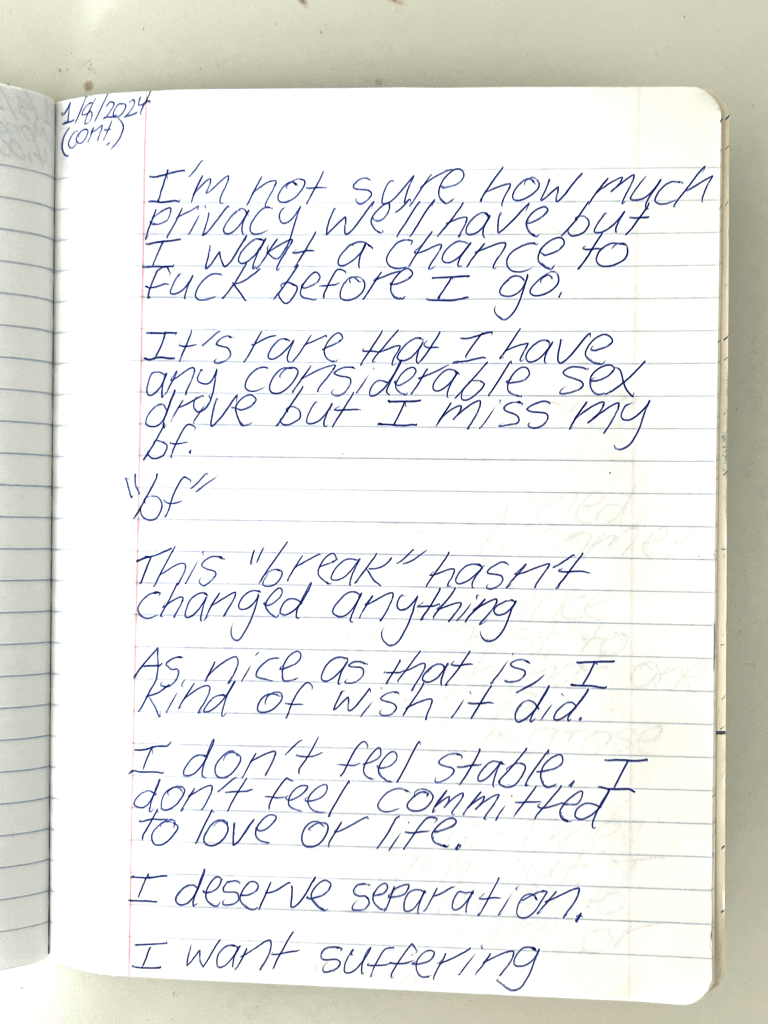 1/8/2024
(cont.)
I'm not sure how much
privacy we'll have but
I want a chance to
fuck before I go.
It's rare that I have
any considerable sex
drive but I miss my
bf.
"bf"
This "break" hasn't
changed anything
As nice as that is, I
kind of wish it did.
I don't feel stable. I
don't feel committed
to love or life.
I deserve separation.
I want suffering